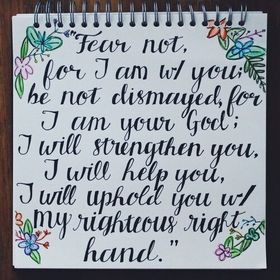 "Fear not,
for I am w/ you;
be not dismayed, for
I am your God;
I will strengthen you,
I will help you,
I will uphold you w/
my righteous right
hand."